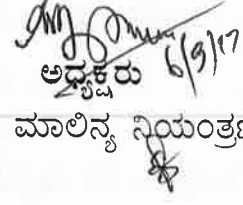 6/9/17
ಅಧ್ಯಕ್ಷರು
ಮಾಲಿನ್ಯ ನಿಯಂತ್ರಣ